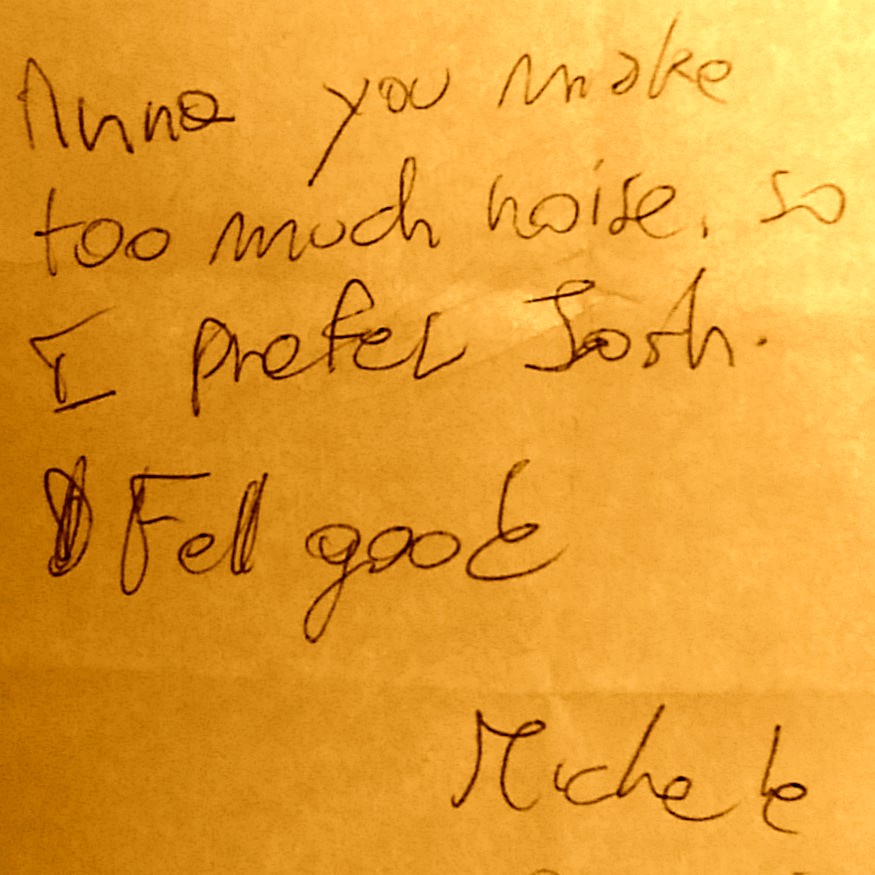 Anna you make
too much noise, so
I prefer Josh.
Fell good
Michele